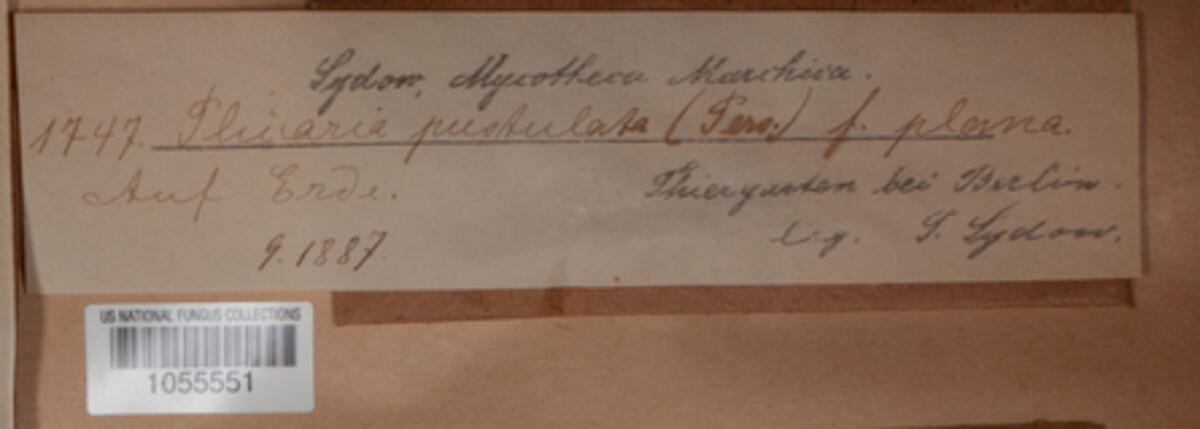 Sydow, Mycotheca Marchica.
1747. Plicaria pustulata (Pers.) f. plana.
Auf Erde.
Thiergarten bei Berlin.
9. 1887.
leg. P. Sydow.
US NATIONAL FUNGUS COLLECTIONS
1055551